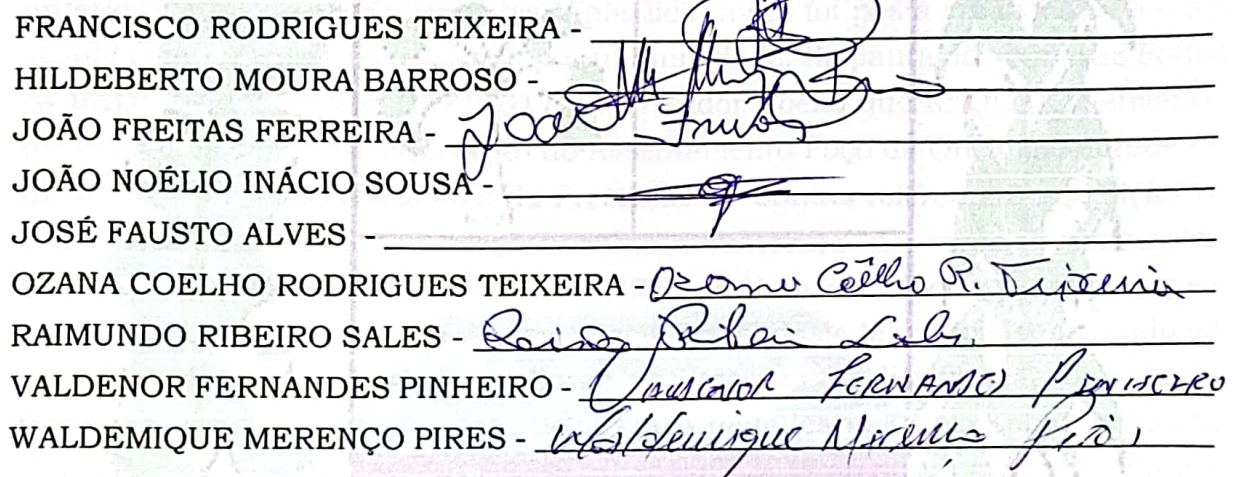 FRANCISCO RODRIGUES TEIXEIRA -
HILDEBERTO MOURA BARROSO -
JOÃO FREITAS FERREIRA - João Freitas
JOÃO NOÉLIO INÁCIO SOUSA -
JOSÉ FAUSTO ALVES -
OZANA COELHO RODRIGUES TEIXEIRA - Ozana Coêlho R. Teixeira
RAIMUNDO RIBEIRO SALES - Ribeiro Sales
VALDENOR FERNANDES PINHEIRO - VALDENOR FERNANDES PINHEIRO
WALDEMIQUE MERENÇO PIRES - Waldemique Merenço Pires